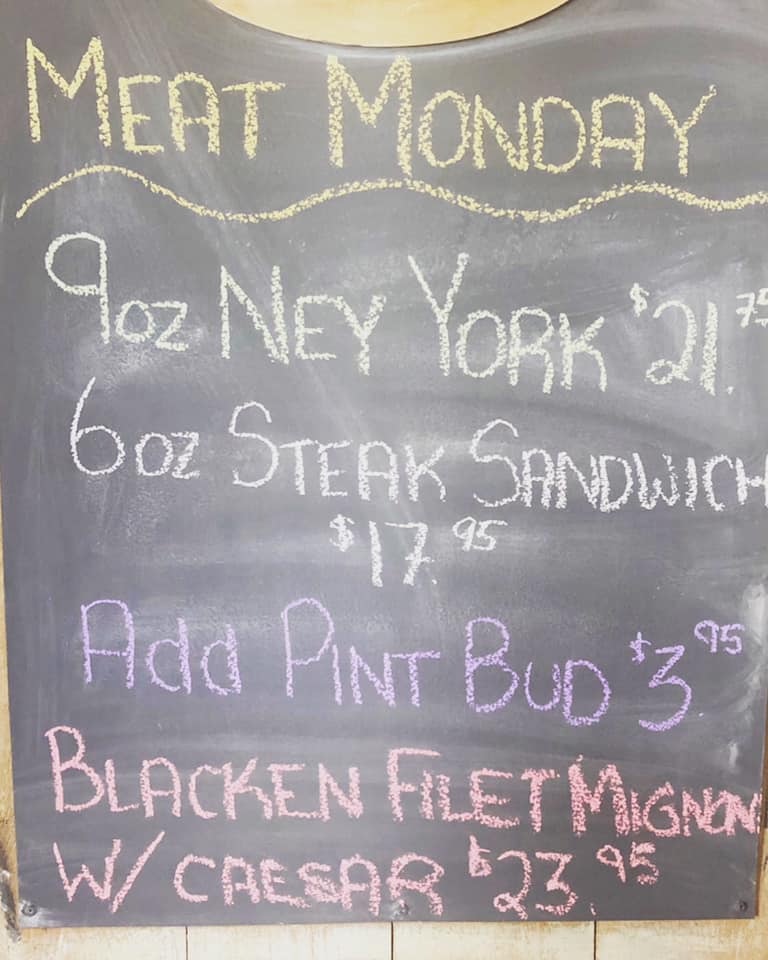 MEAT MONDAY
9oz NEY YORK $21.75
6oz STEAK SANDWICH
$17.95
Add PINT BUD $3.95
BLACKEN FILET MIGNON
W/ CAESAR $23.95